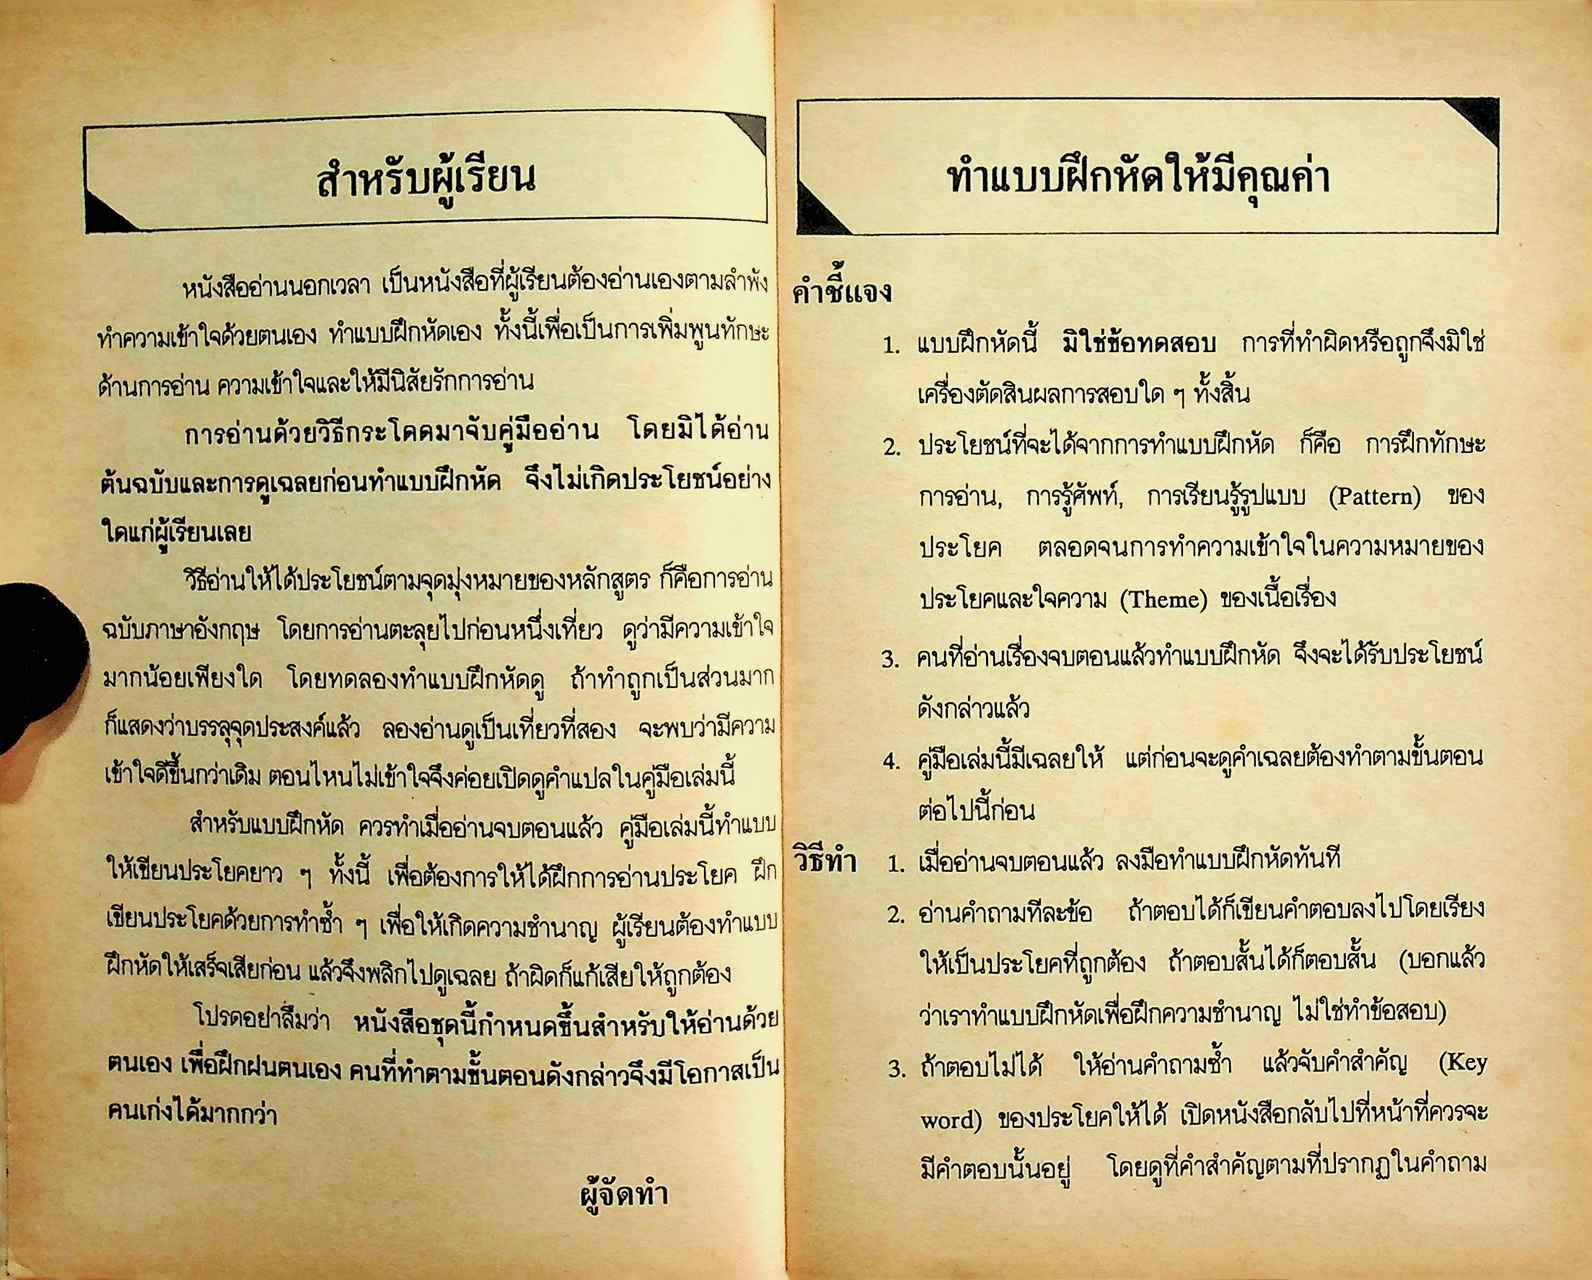 สำหรับผู้เรียน
หนังสืออ่านนอกเวลา เป็นหนังสือที่ผู้เรียนต้องอ่านเองตามลำพัง
ทำความเข้าใจด้วยตนเอง ทำแบบฝึกหัดเอง ทั้งนี้เพื่อเป็นการเพิ่มพูนทักษะ
ด้านการอ่าน ความเข้าใจและให้มีนิสัยรักการอ่าน
การอ่านด้วยวิธีกระโดดมาจับคู่มืออ่าน โดยมิได้อ่าน
ต้นฉบับและการดูเฉลยก่อนทำแบบฝึกหัด จึงไม่เกิดประโยชน์อย่าง
ใดแก่ผู้เรียนเลย
วิธีอ่านให้ได้ประโยชน์ตามจุดมุ่งหมายของหลักสูตร ก็คือการอ่าน
ฉบับภาษาอังกฤษ โดยการอ่านตะลุยไปก่อนหนึ่งเที่ยว ดูว่ามีความเข้าใจ
มากน้อยเพียงใด โดยทดลองทำแบบฝึกหัดดู ถ้าทำถูกเป็นส่วนมาก
ก็แสดงว่าบรรลุจุดประสงค์แล้ว ลองอ่านดูเป็นเที่ยวที่สอง จะพบว่ามีความ
เข้าใจดีขึ้นกว่าเดิม ตอนไหนไม่เข้าใจจึงค่อยเปิดดูคำแปลในคู่มือเล่มนี้
สำหรับแบบฝึกหัด ควรทำเมื่ออ่านจบตอนแล้ว คู่มือเล่มนี้ทำแบบ
ให้เขียนประโยคยาว ๆ ทั้งนี้ เพื่อต้องการให้ได้ฝึกการอ่านประโยค ฝึก
เขียนประโยคด้วยการทำซ้ำ ๆ เพื่อให้เกิดความชำนาญ ผู้เรียนต้องทำแบบ
ฝึกหัดให้เสร็จเสียก่อน แล้วจึงพลิกไปดูเฉลย ถ้าผิดก็แก้เสียให้ถูกต้อง
โปรดอย่าลืมว่า หนังสือชุดนี้กำหนดขึ้นสำหรับให้อ่านด้วย
ตนเอง เพื่อฝึกฝนตนเอง คนที่ทำตามขั้นตอนดังกล่าวจึงมีโอกาสเป็น
คนเก่งได้มากกว่า
ผู้จัดทำ
ทำแบบฝึกหัดให้มีคุณค่า
คำชี้แจง
1. แบบฝึกหัดนี้ มิใช่ข้อทดสอบ การที่ทำผิดหรือถูกจึงมิใช่
เครื่องตัดสินผลการสอบใด ๆ ทั้งสิ้น
2. ประโยชน์ที่จะได้จากการทำแบบฝึกหัด ก็คือ การฝึกทักษะ
การอ่าน, การรู้ศัพท์, การเรียนรู้รูปแบบ (Pattern) ของ
ประโยค ตลอดจนการทำความเข้าใจในความหมายของ
ประโยคและใจความ (Theme) ของเนื้อเรื่อง
3. คนที่อ่านเรื่องจบตอนแล้วทำแบบฝึกหัด จึงจะได้รับประโยชน์
ดังกล่าวแล้ว
4. คู่มือเล่มนี้มีเฉลยให้ แต่ก่อนจะดูคำเฉลยต้องทำตามขั้นตอน
ต่อไปนี้ก่อน
วิธีทำ 1. เมื่ออ่านจบตอนแล้ว ลงมือทำแบบฝึกหัดทันที
2. อ่านคำถามทีละข้อ ถ้าตอบได้ก็เขียนคำตอบลงไปโดยเรียง
ให้เป็นประโยคที่ถูกต้อง ถ้าตอบสั้นได้ก็ตอบสั้น (บอกแล้ว
ว่าเราทำแบบฝึกหัดเพื่อฝึกความชำนาญ ไม่ใช่ทำข้อสอบ)
3. ถ้าตอบไม่ได้ ให้อ่านคำถามซ้ำ แล้วจับคำสำคัญ (Key
word) ของประโยคให้ได้ เปิดหนังสือกลับไปที่หน้าที่ควรจะ
มีคำตอบนั้นอยู่ โดยดูที่คำสำคัญตามที่ปรากฏในคำถาม